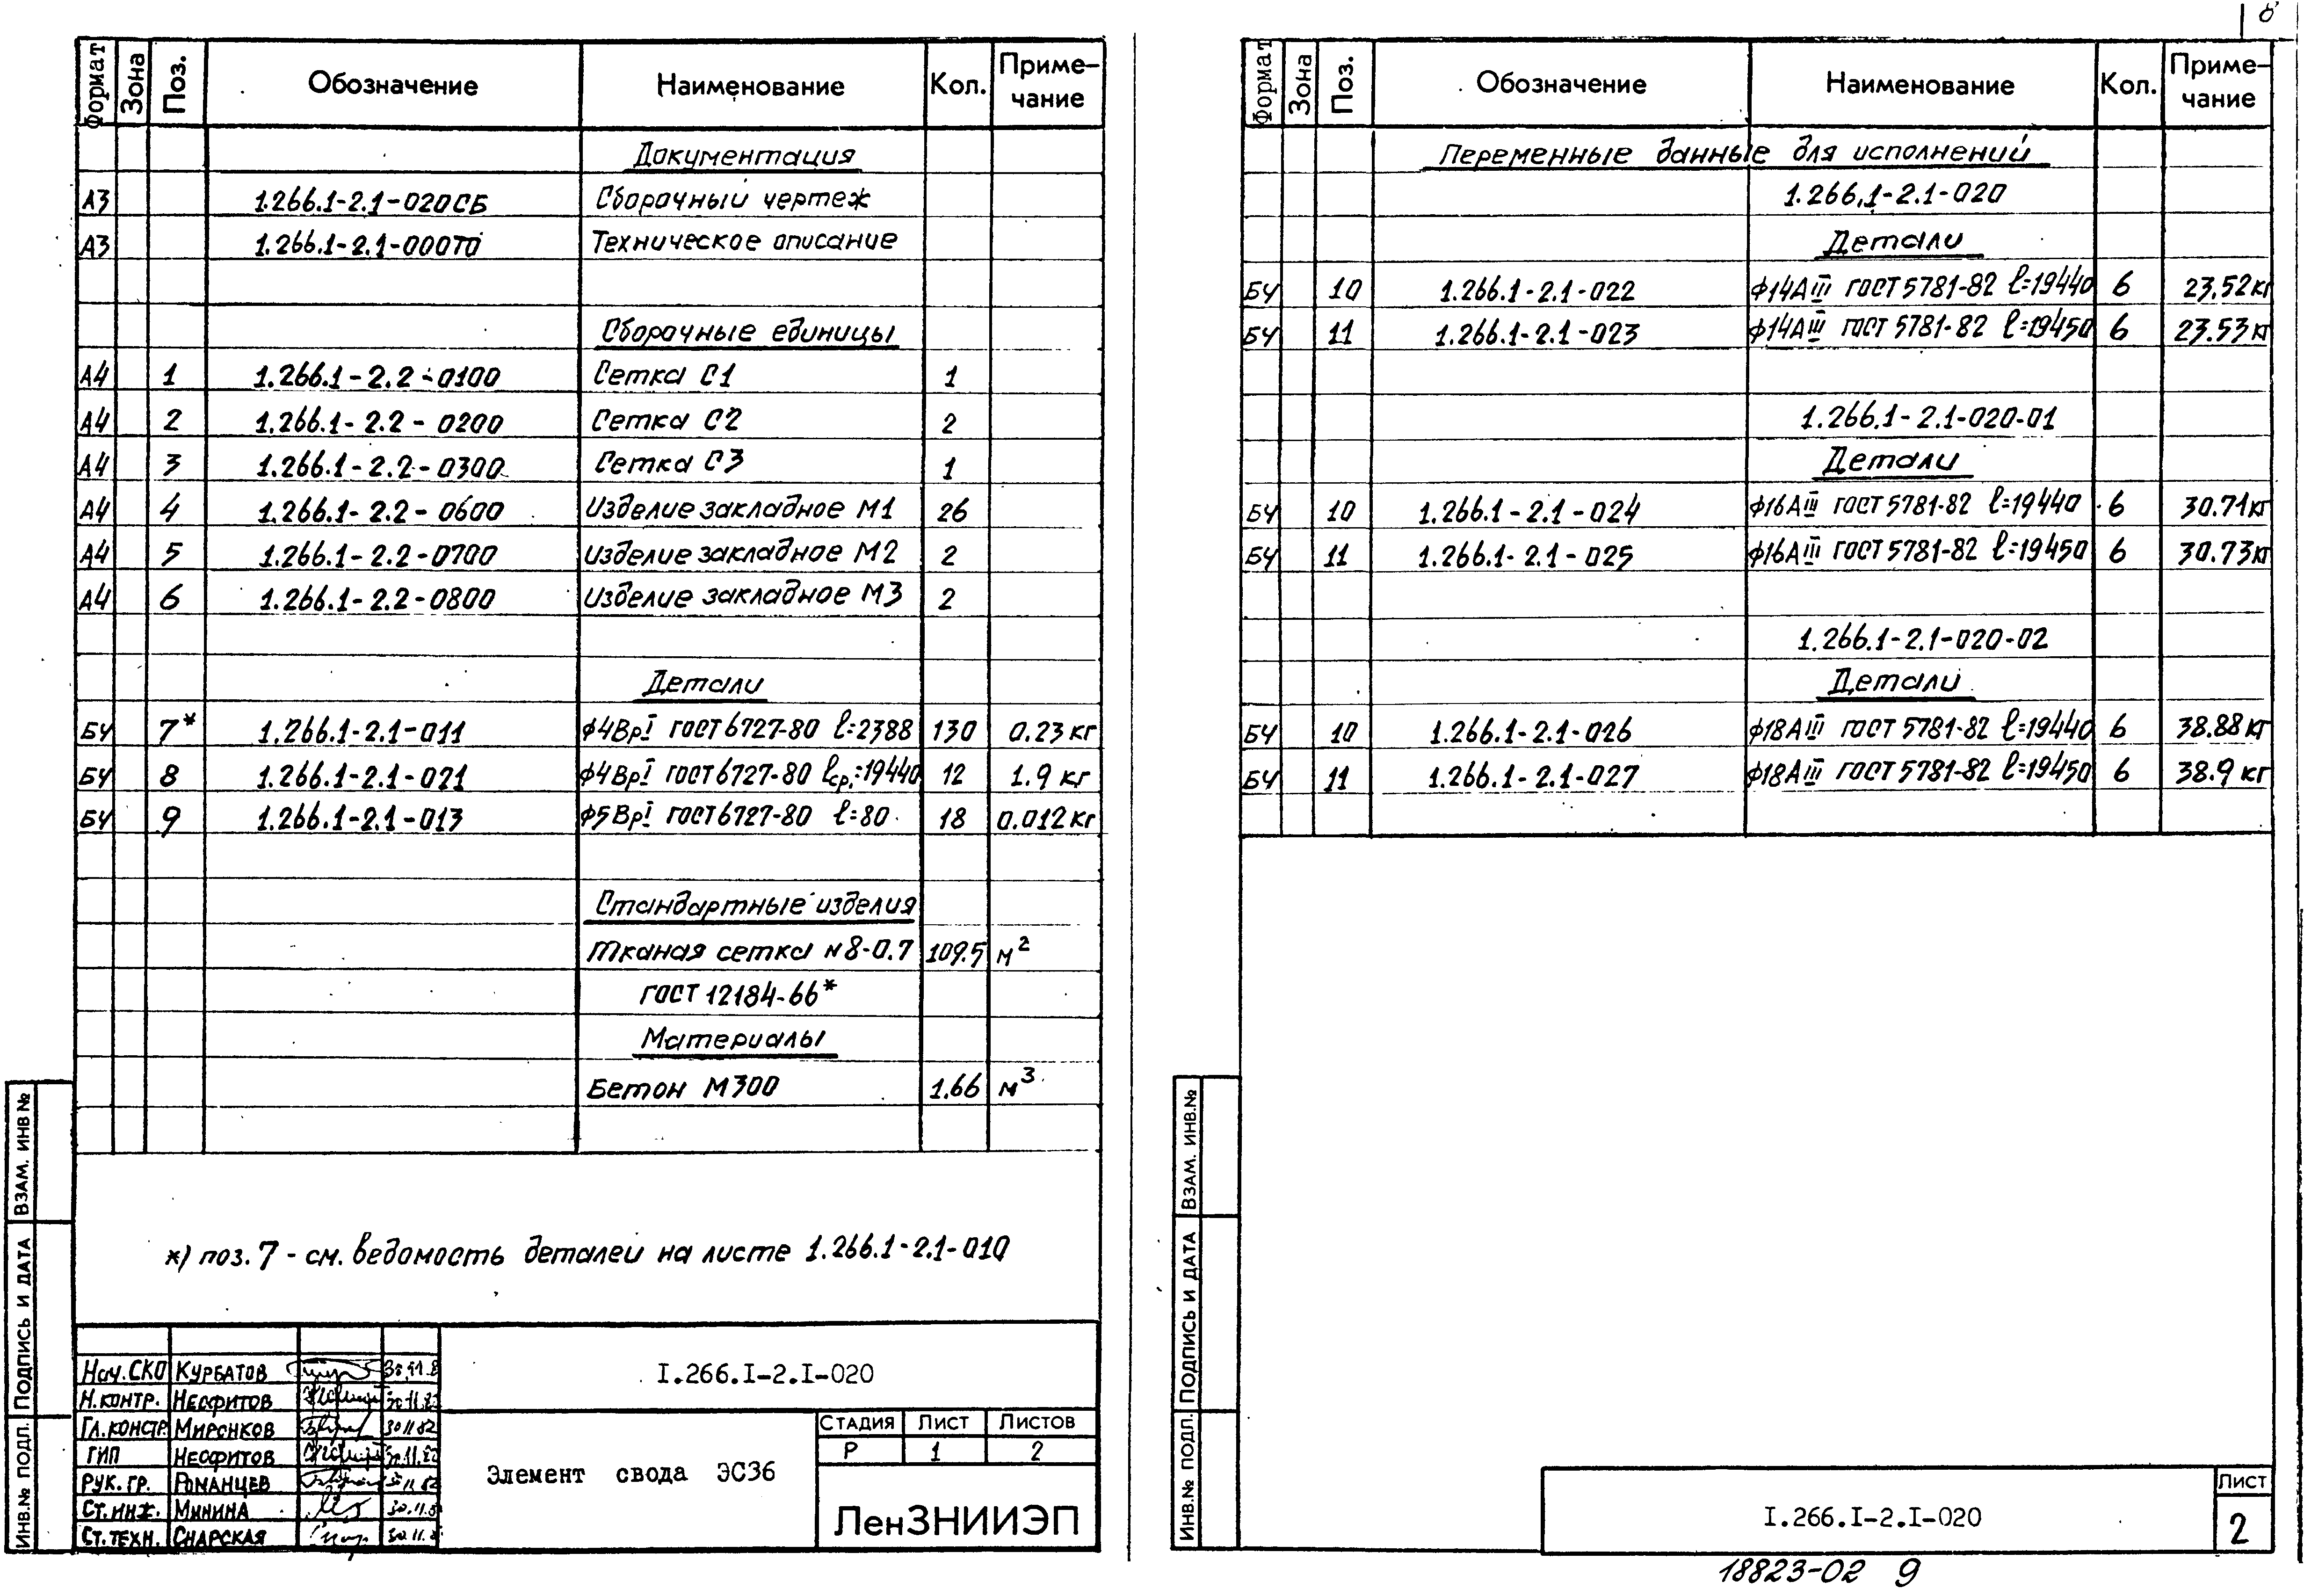 Формат Зона Поз. Обозначение Наименование Кол. Приме-чание
Документация
А3 1.266.1-2.1-020СБ Сборочный чертеж
А3 1.266.1-2.1-000ТО Техническое описание
Сборочные единицы
А4 1 1.266.1-2.2-0100 Сетка С1 1
А4 2 1.266.1-2.2-0200 Сетка С2 2
А4 3 1.266.1-2.2-0300 Сетка С3 1
А4 4 1.266.1-2.2-0600 Изделие закладное М1 26
А4 5 1.266.1-2.2-0700 Изделие закладное М2 2
А4 6 1.266.1-2.2-0800 Изделие закладное М3 2
Детали
БЧ 7* 1.266.1-2.1-011 ф4ВрI ГОСТ 6727-80 ℓ=2388 130 0.23 кг
БЧ 8 1.266.1-2.1-021 ф4ВрI ГОСТ 6727-80 ℓср.=19440 12 1.9 кг
БЧ 9 1.266.1-2.1-013 ф5ВрI ГОСТ 6727-80 ℓ=80 18 0.012 кг
Стандартные изделия
Тканая сетка N8-0.7 109.5 м²
ГОСТ 12184-66*
Материалы
Бетон М300 1.66 м³
*) поз. 7 - см. ведомость деталей на листе 1.266.1-2.1-010
ВЗАМ. ИНВ №
ПОДПИСЬ И ДАТА
ИНВ.№ ПОДЛ.
Нач. СКО КУРБАТОВ 30.11.8
Н. КОНТР. НЕОФИТОВ 30.11.82
ГЛ. КОНСТР. МИРОНКОВ 30.11.82
ГИП НЕОФИТОВ 30.11.82
РУК. ГР. РОМАНЦЕВ 30.11.82
СТ. ИНЖ. МИНИНА 30.11.8
СТ. ТЕХН. СНАРСКАЯ 30.11.8
I.266.I-2.I-020
Элемент свода ЭС36
СТАДИЯ ЛИСТ ЛИСТОВ
Р 1 2
ЛенЗНИИЭП
Формат Зона Поз. Обозначение Наименование Кол. Приме-чание
Переменные данные для исполнений
1.266.1-2.1-020
Детали
БЧ 10 1.266.1-2.1-022 ф14АIII ГОСТ 5781-82 ℓ=19440 6 23.52 кг
БЧ 11 1.266.1-2.1-023 ф14АIII ГОСТ 5781-82 ℓ=19450 6 23.53 кг
1.266.1-2.1-020-01
Детали
БЧ 10 1.266.1-2.1-024 ф16АIII ГОСТ 5781-82 ℓ=19440 6 30.71 кг
БЧ 11 1.266.1-2.1-025 ф16АIII ГОСТ 5781-82 ℓ=19450 6 30.73 кг
1.266.1-2.1-020-02
Детали
БЧ 10 1.266.1-2.1-026 ф18АIII ГОСТ 5781-82 ℓ=19440 6 38.88 кг
БЧ 11 1.266.1-2.1-027 ф18АIII ГОСТ 5781-82 ℓ=19450 6 38.9 кг
ВЗАМ. ИНВ.№
ПОДПИСЬ И ДАТА
ИНВ.№ ПОДЛ.
I.266.I-2.I-020
ЛИСТ
2
18823-02 9